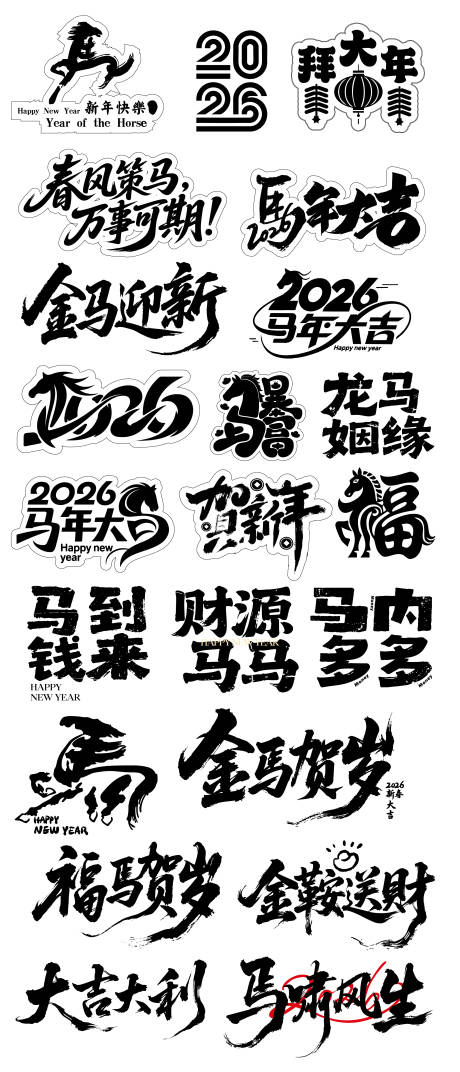 Happy New Year 新年快樂
Year of the Horse
2026
拜大年
春风策马，
万事可期！
馬年大吉
2026
金马迎新
2026
马年大吉
Happy new year
2026
马
暴富
龙马
姻缘
2026
马年大吉
Happy new
year
贺新年
福
马到
钱来
HAPPY
NEW YEAR
财源
HAPPY NEW YEAR
马马
马内
多多
Money
Money
Money
馬
HAPPY
NEW YEAR
金馬贺岁
2026
新春
大吉
福马贺岁
金鞍送财
大吉大利
马啸风生
2026